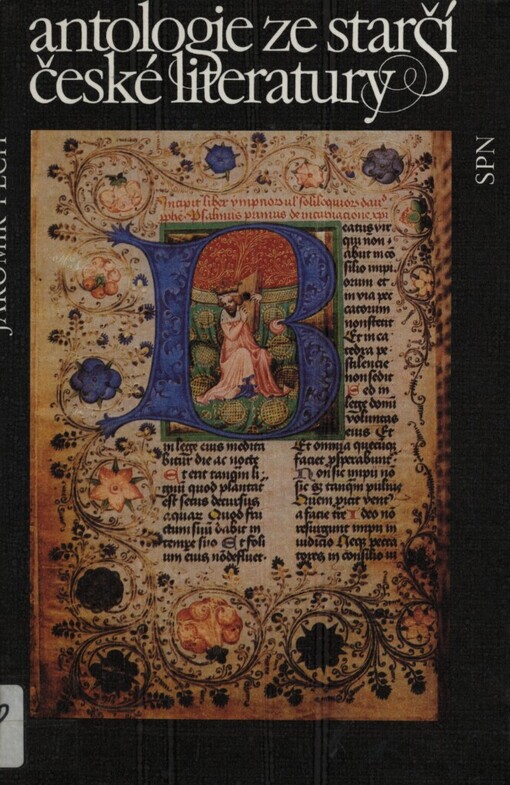 antologie ze starší
české literatury
SPN
JAROMÍR PLCH
Incipit liber ympnorum vel soliloquiorum
Psalmus primus de incarnacione xpi
eatus vir
qui non
abijt in co
silio impi
orum et
in via pec
catorum
non stetit
Et in ca
tedra pe
stilencie
non sedit
Sed in
lege domi
voluntas
eius Et
in lege eius medita
bitur die ac nocte
Et erit tanqm li
gnū quod plantat
est secus decursus
aquar Quod fru
ctum suū dabit in
tempe suo Et foli
um eius nō defluet
Et omnia quecūqz
faciet psperabunt
Non sic impij nō
sic sz tanqm puluis
Quem picit vent
a facie tre Ideo nō
resurgunt impij in
iudicio Neqz pecca
tores in consilio iu